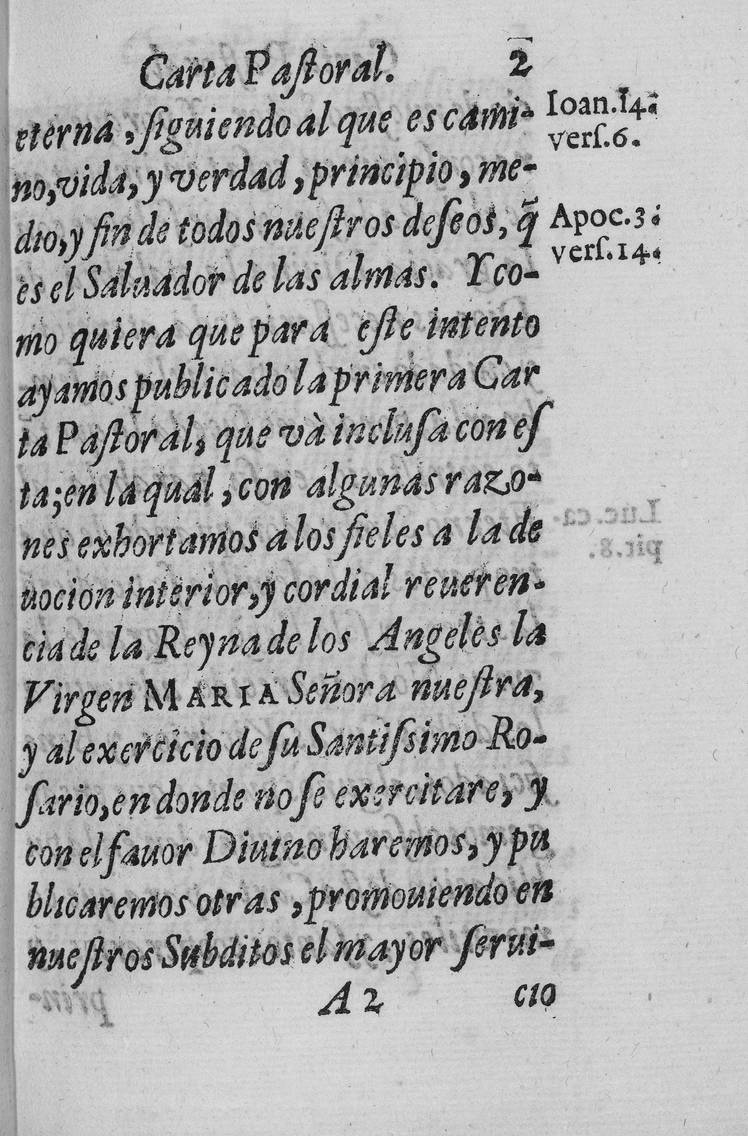 Carta Paſtoral. 2
eterna, ſiguiendo al que es cami-
no, vida, y verdad, principio, me-
dio, y fin de todos nueſtros deſeos, q̃
es el Saluador de las almas. Y co-
mo quiera que para eſte intento
ayamos publicado la primera Car
ta Paſtoral, que và incluſa con eſ
ta; en la qual, con algunas razo-
nes exhortamos a los fieles a la de
uocion interior, y cordial reueren-
cia de la Reyna de los Angeles la
Virgen MARIA Señora nueſtra,
y al exercicio de ſu Santiſsimo Ro-
ſario, en donde no ſe exercitare, y
con el fauor Diuino haremos, y pu
blicaremos otras, promouiendo en
nueſtros Subditos el mayor ſerui-
A 2 cio
Ioan. 14.
verſ. 6.
Apoc. 3.
verſ. 14.